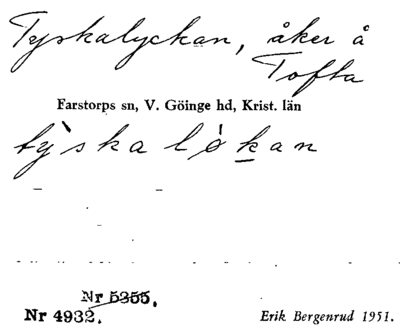 Tyskalyckan, åker å
Tofta
Farstorps sn, V. Göinge hd, Krist. län
tỳskaló̱kan
Nr 5355.
Nr 4932.
Erik Bergenrud 1951.